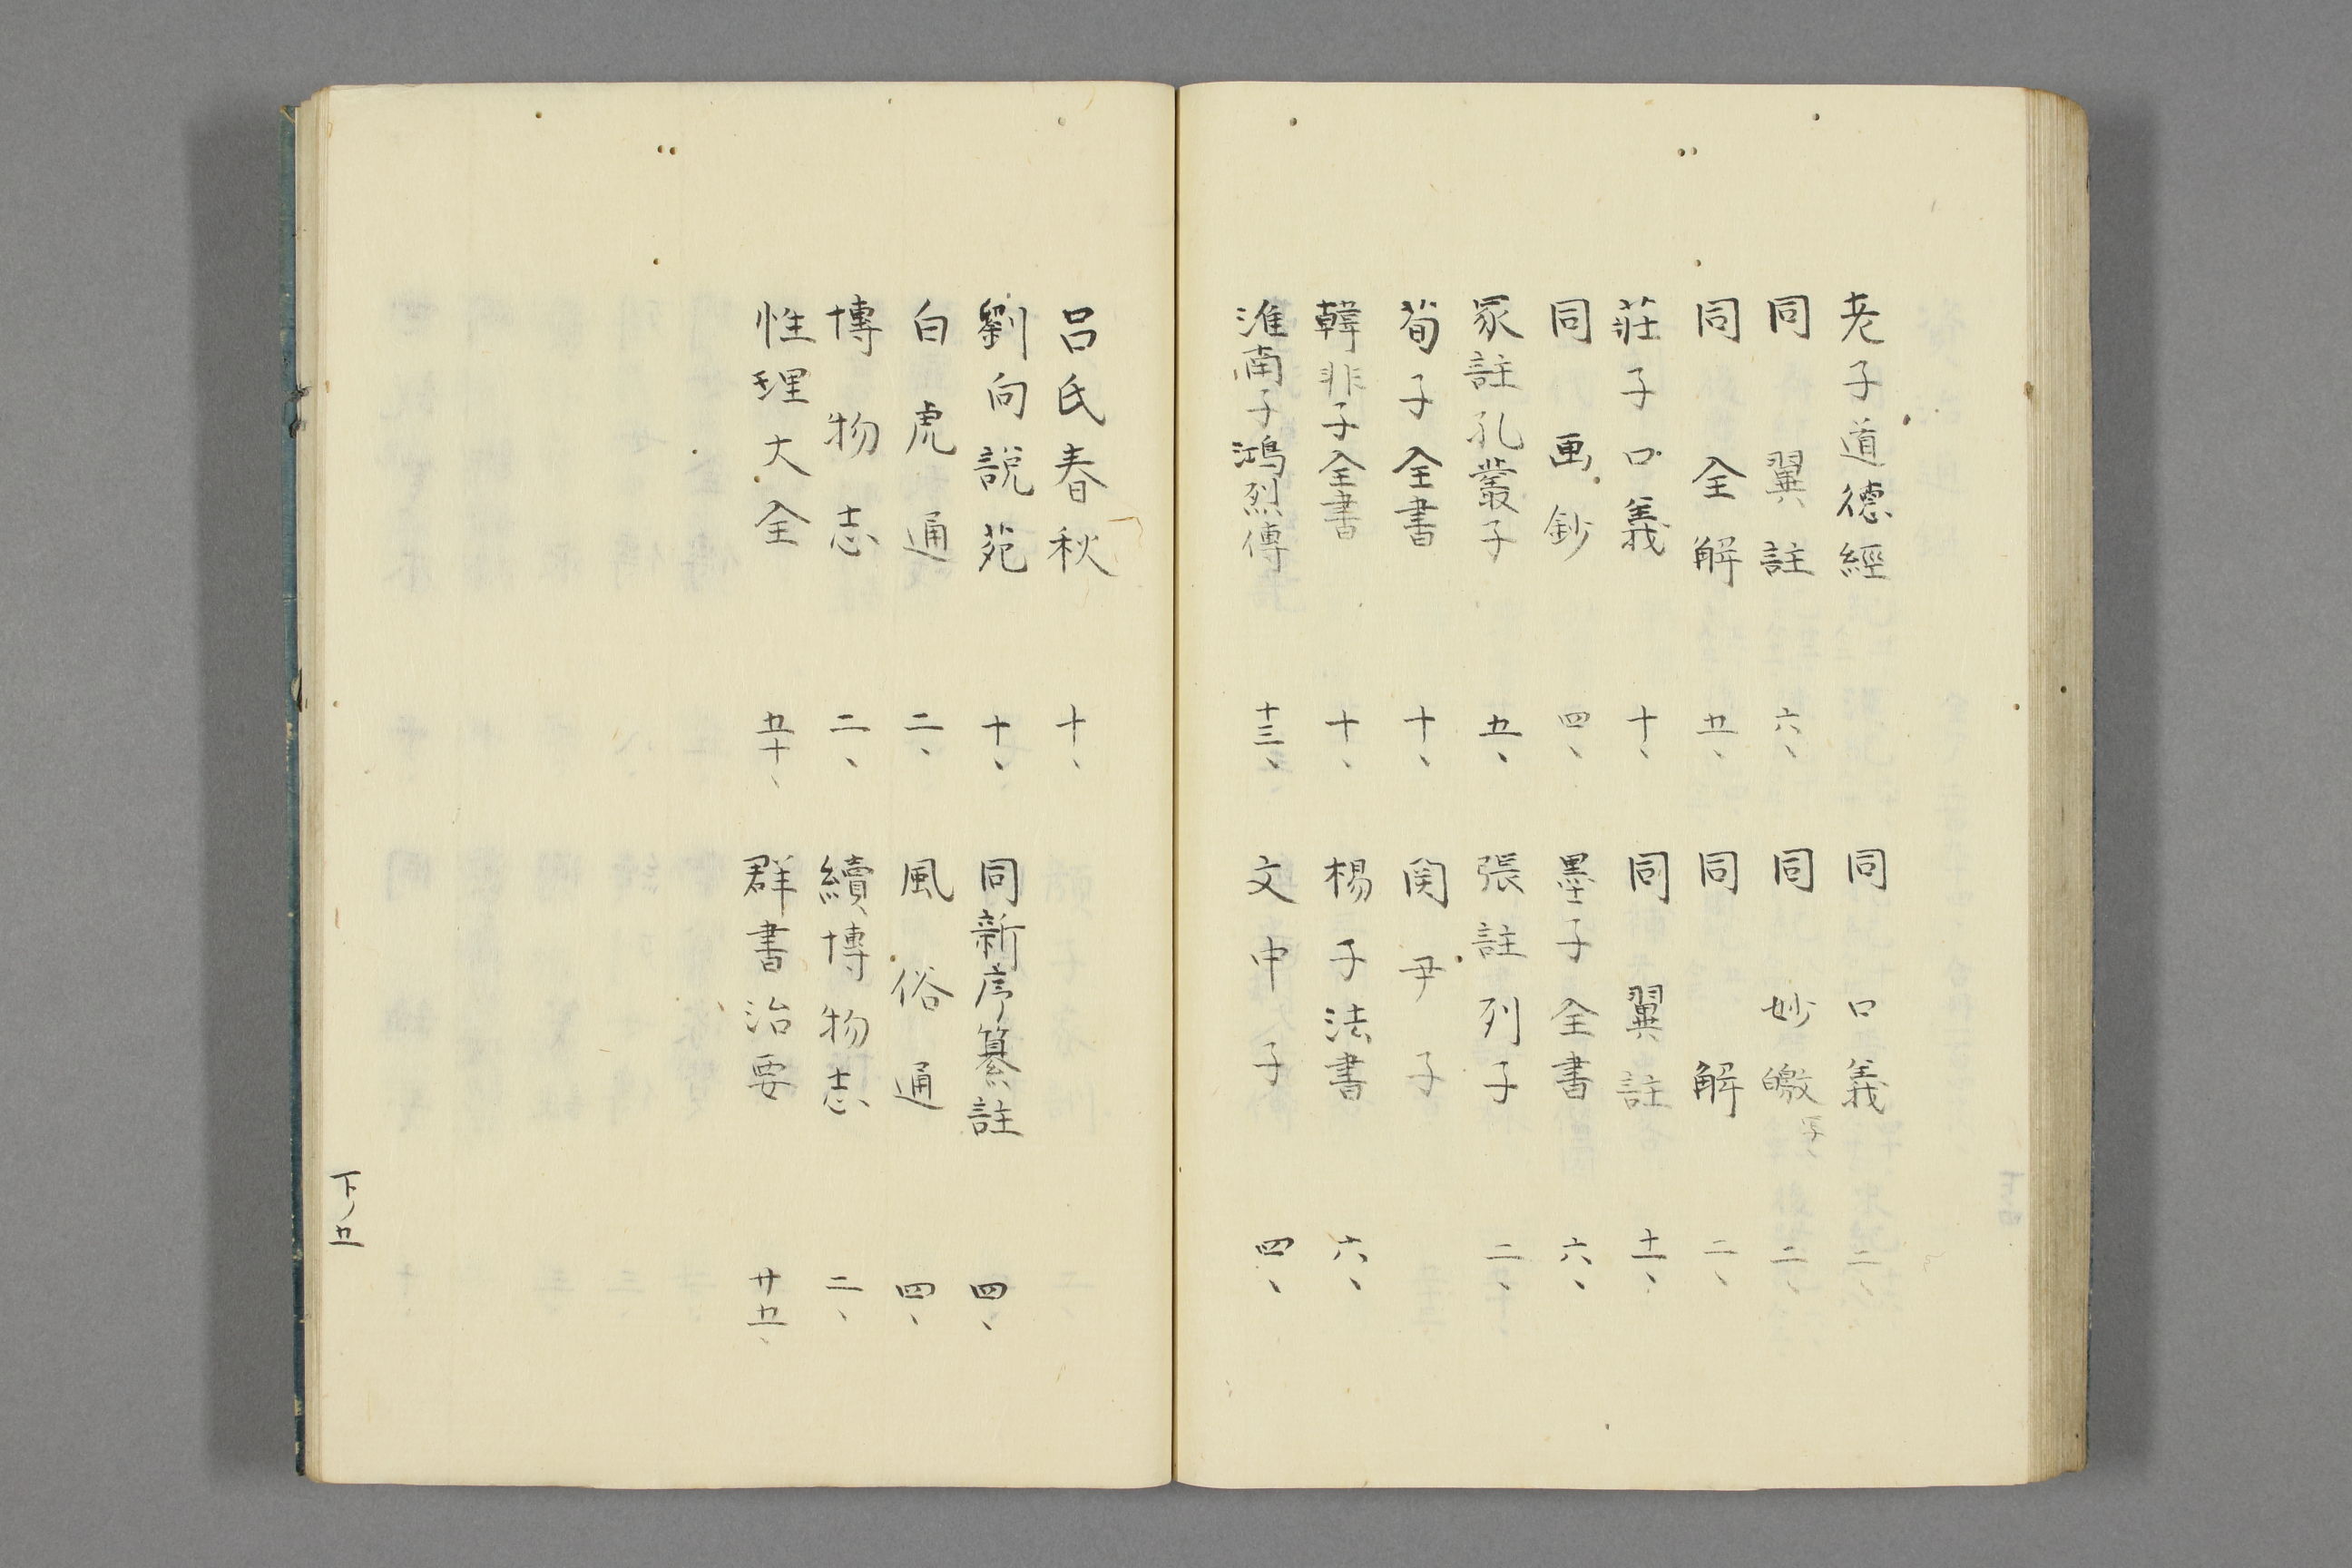 老子道德經 同口義 二、
同翼註 六、 同妙皦 写 二、
同全解 五、 同解 二、
莊子口義 十、 同翼註 十一、
同画鈔 四、 墨子全書 六、
冢註孔叢子 五、 張註列子 二、
荀子全書 十、 関尹子
韓非子全書 十、 楊子法書 六、
淮南子鴻烈傳 十三、 文中子 四、
呂氏春秋 十、
劉向說苑 十、 同新序纂註 四、
白虎通 二、 風俗通 四、
博物志 二、 續博物志 二、
性理大全 五十、 群書治要 廿五、
下ノ五